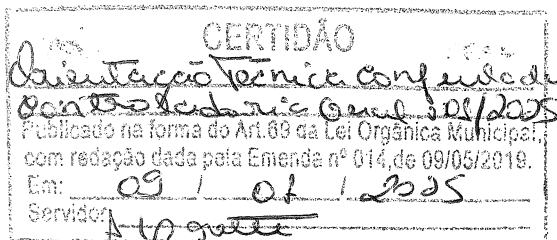 CERTIDÃO
Orientação Técnica
01/2025
Publicado na forma do Art.69 da Lei Orgânica Municipal,
com redação dada pela Emenda nº 014,de 09/05/2019.
Em: 09 / 01 / 2025
Servidor